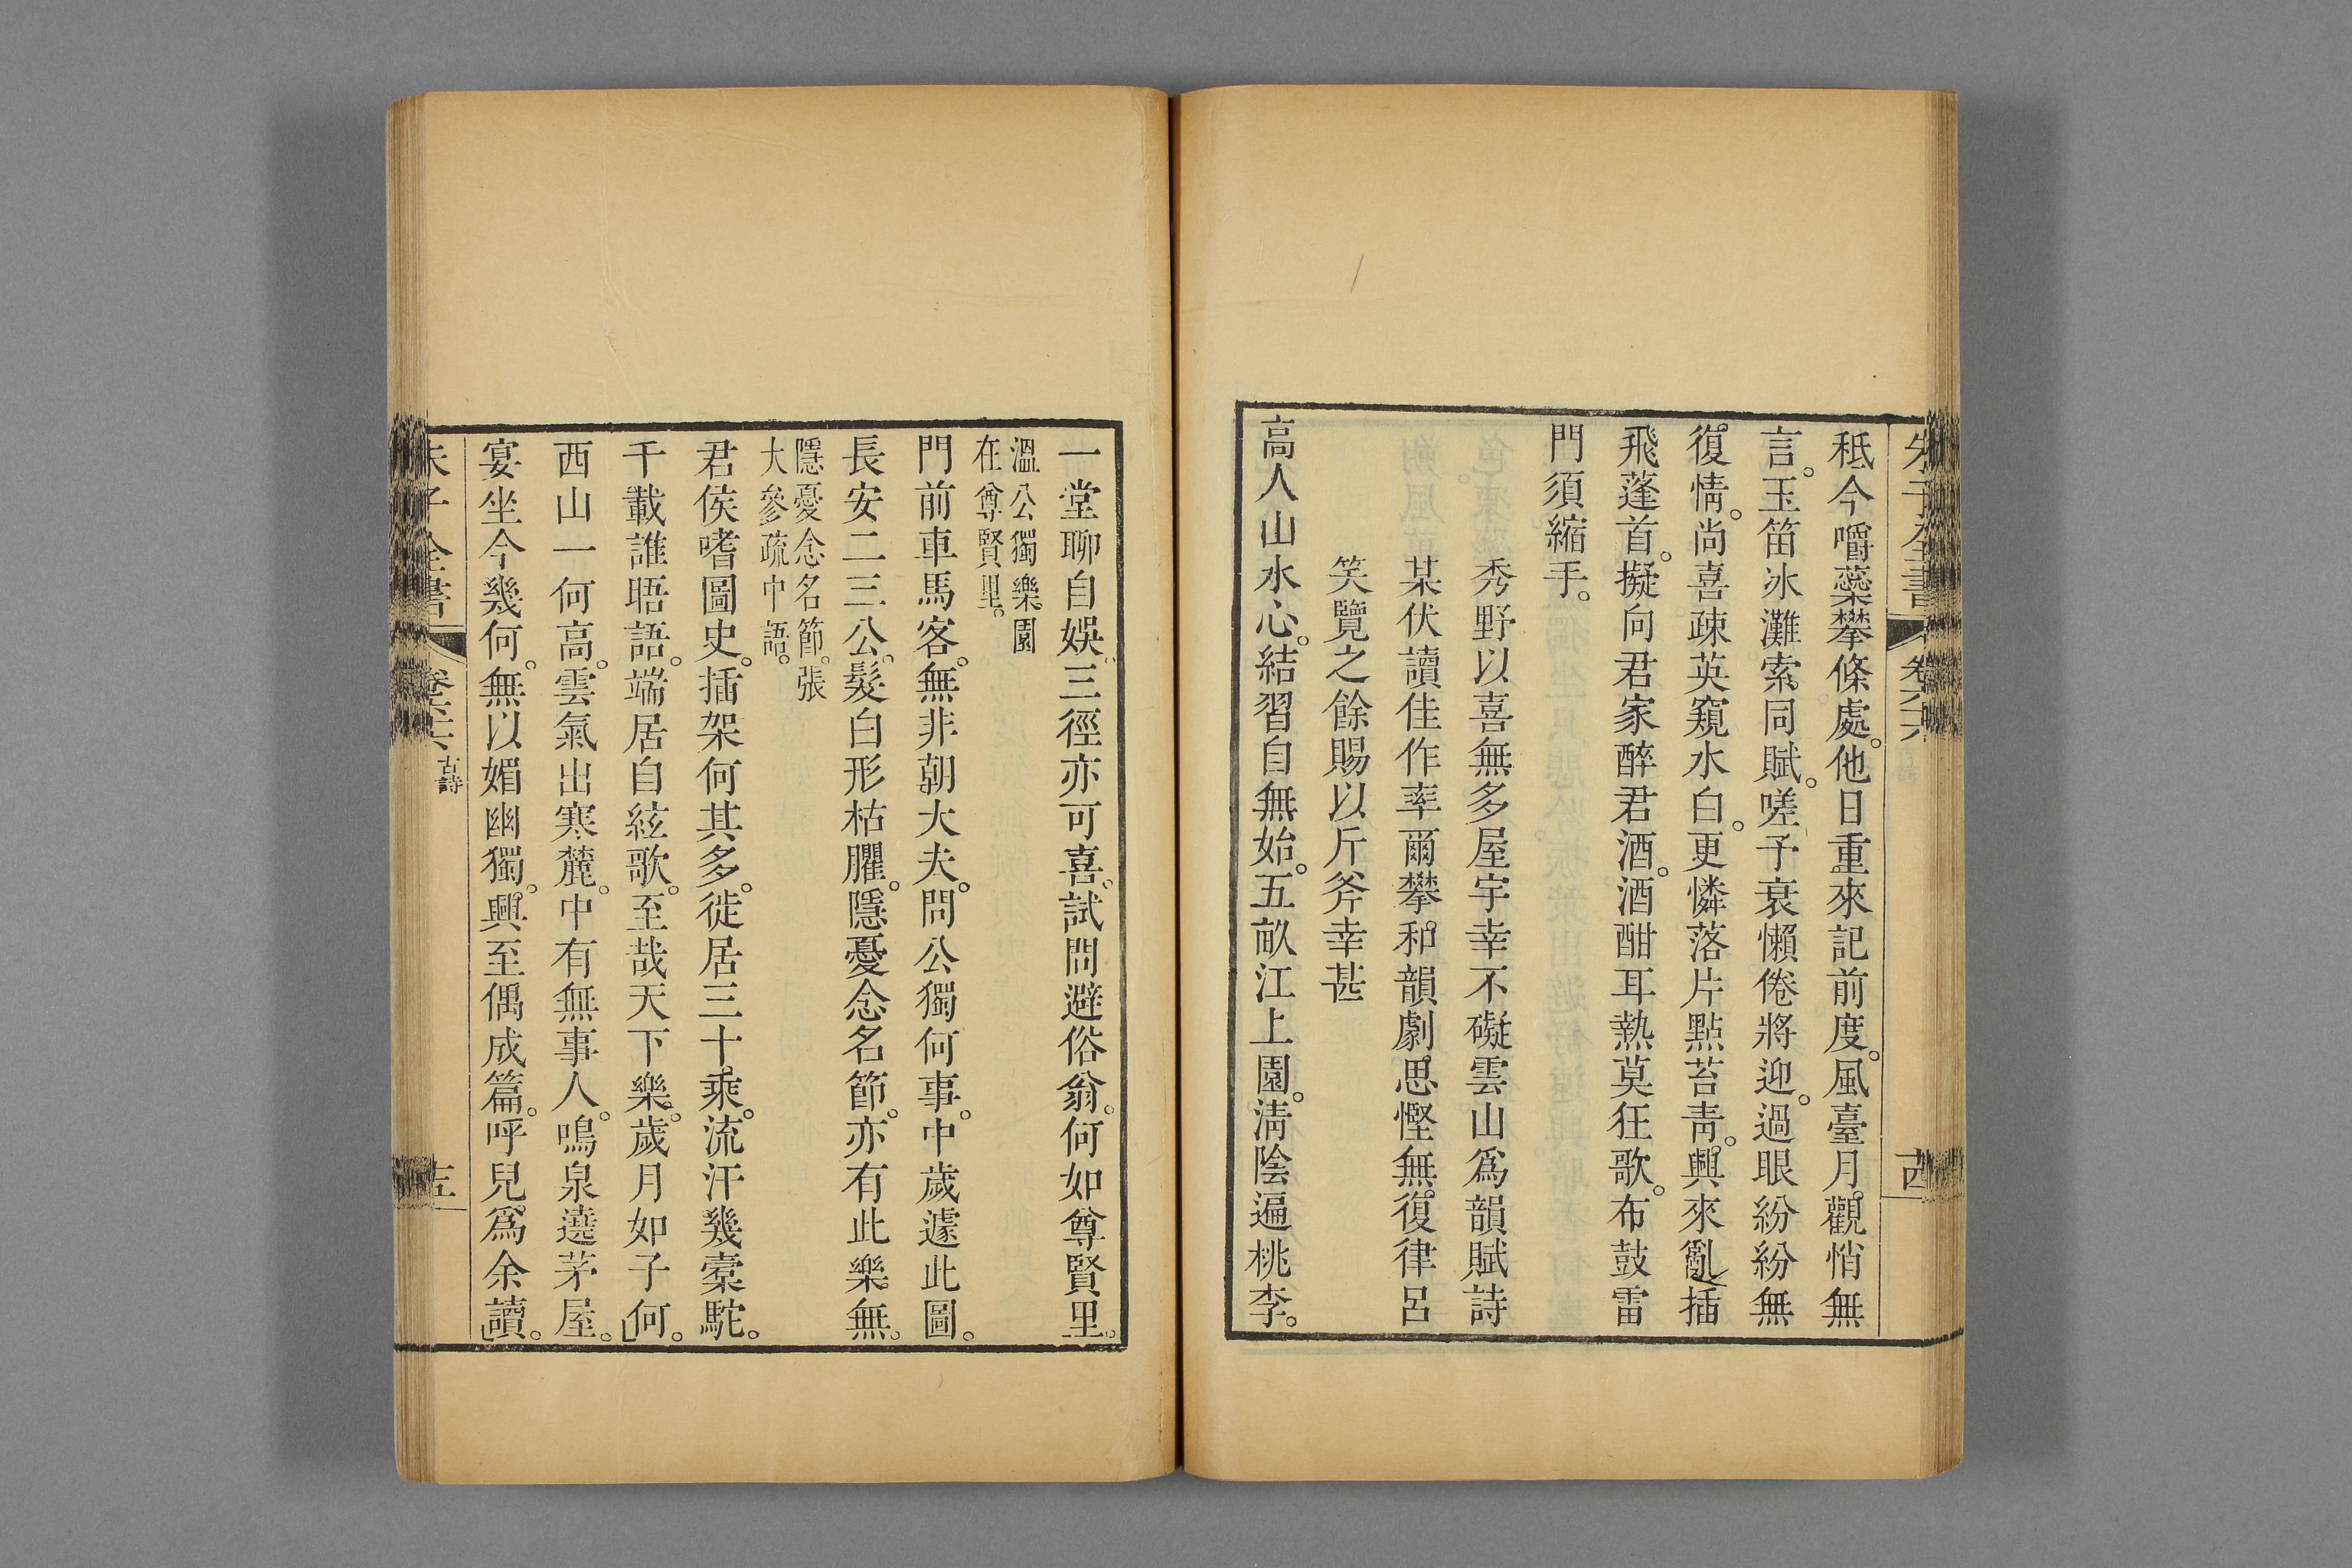 朱子全書 卷六六
秖今嚼蘂攀條處。他日重來記前度。風臺月觀悄無
言。玉笛冰灘索同賦。嗟予衰懶倦將迎。過眼紛紛無
復情。尚喜疎英窺水白。更憐落片點苔靑。興來亂插
飛蓬首。擬向君家醉君酒。酒酣耳熱莫狂歌。布鼓雷
門須縮手。
秀野以喜無多屋宇幸不礙雲山爲韻賦詩
某伏讀佳作率爾攀和韻劇思慳無復律呂
笑覽之餘賜以斤斧幸甚
高人山水心。結習自無始。五畝江上園。淸陰遍桃李。
一堂聊自娛。三徑亦可喜。試問避俗翁。何如尊賢里。
溫公獨樂園
在尊賢里。
門前車馬客。無非朝大夫。問公獨何事。中歲遽此圖。
長安二三公。髮白形枯臞。隱憂念名節。亦有此樂無。
隱憂念名節。張
大參疏中語。
君侯嗜圖史。插架何其多。徙居三十乘。流汗幾橐駝。
千載誰晤語。端居自絃歌。至哉天下樂。歲月如子何。
西山一何高。雲氣出寒麓。中有無事人。鳴泉遶茅屋。
宴坐今幾何。無以媚幽獨。興至偶成篇。呼兒爲余讀。
朱子全書 卷六六 古詩